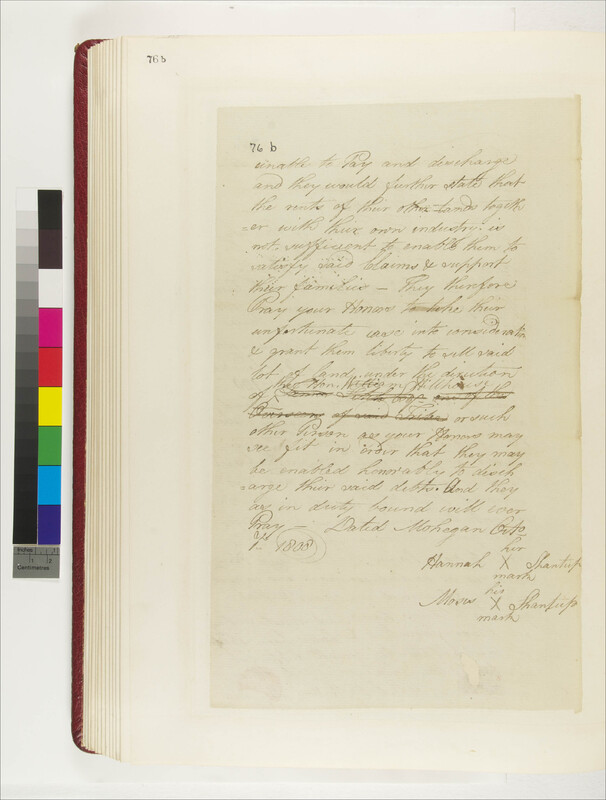 76 b
76 b
unable to Pay and discharge
and they would further state that
the rents of their other Lands togeth
=er with their own industry is
not sufficient to enable them to
satisfy said Claims & support
their families — They therefore
Pray your Honors to take their
unfortunate case into consideration
& grant them liberty to sell said
lot of land under the direction
the Hon. William Hillhouse
of James one of the
Overseers of said Tribe or such
other Person as your Honors may
see fit in order that they may
be enabled honorably to disch
=arge their said debts. And they
as in duty bound will ever
Pray — Dated Mohegan Octo
1st 1808
her
Hannah X Shantup
mark
his
Moses X Shantup
mark
Inches
Centimetres